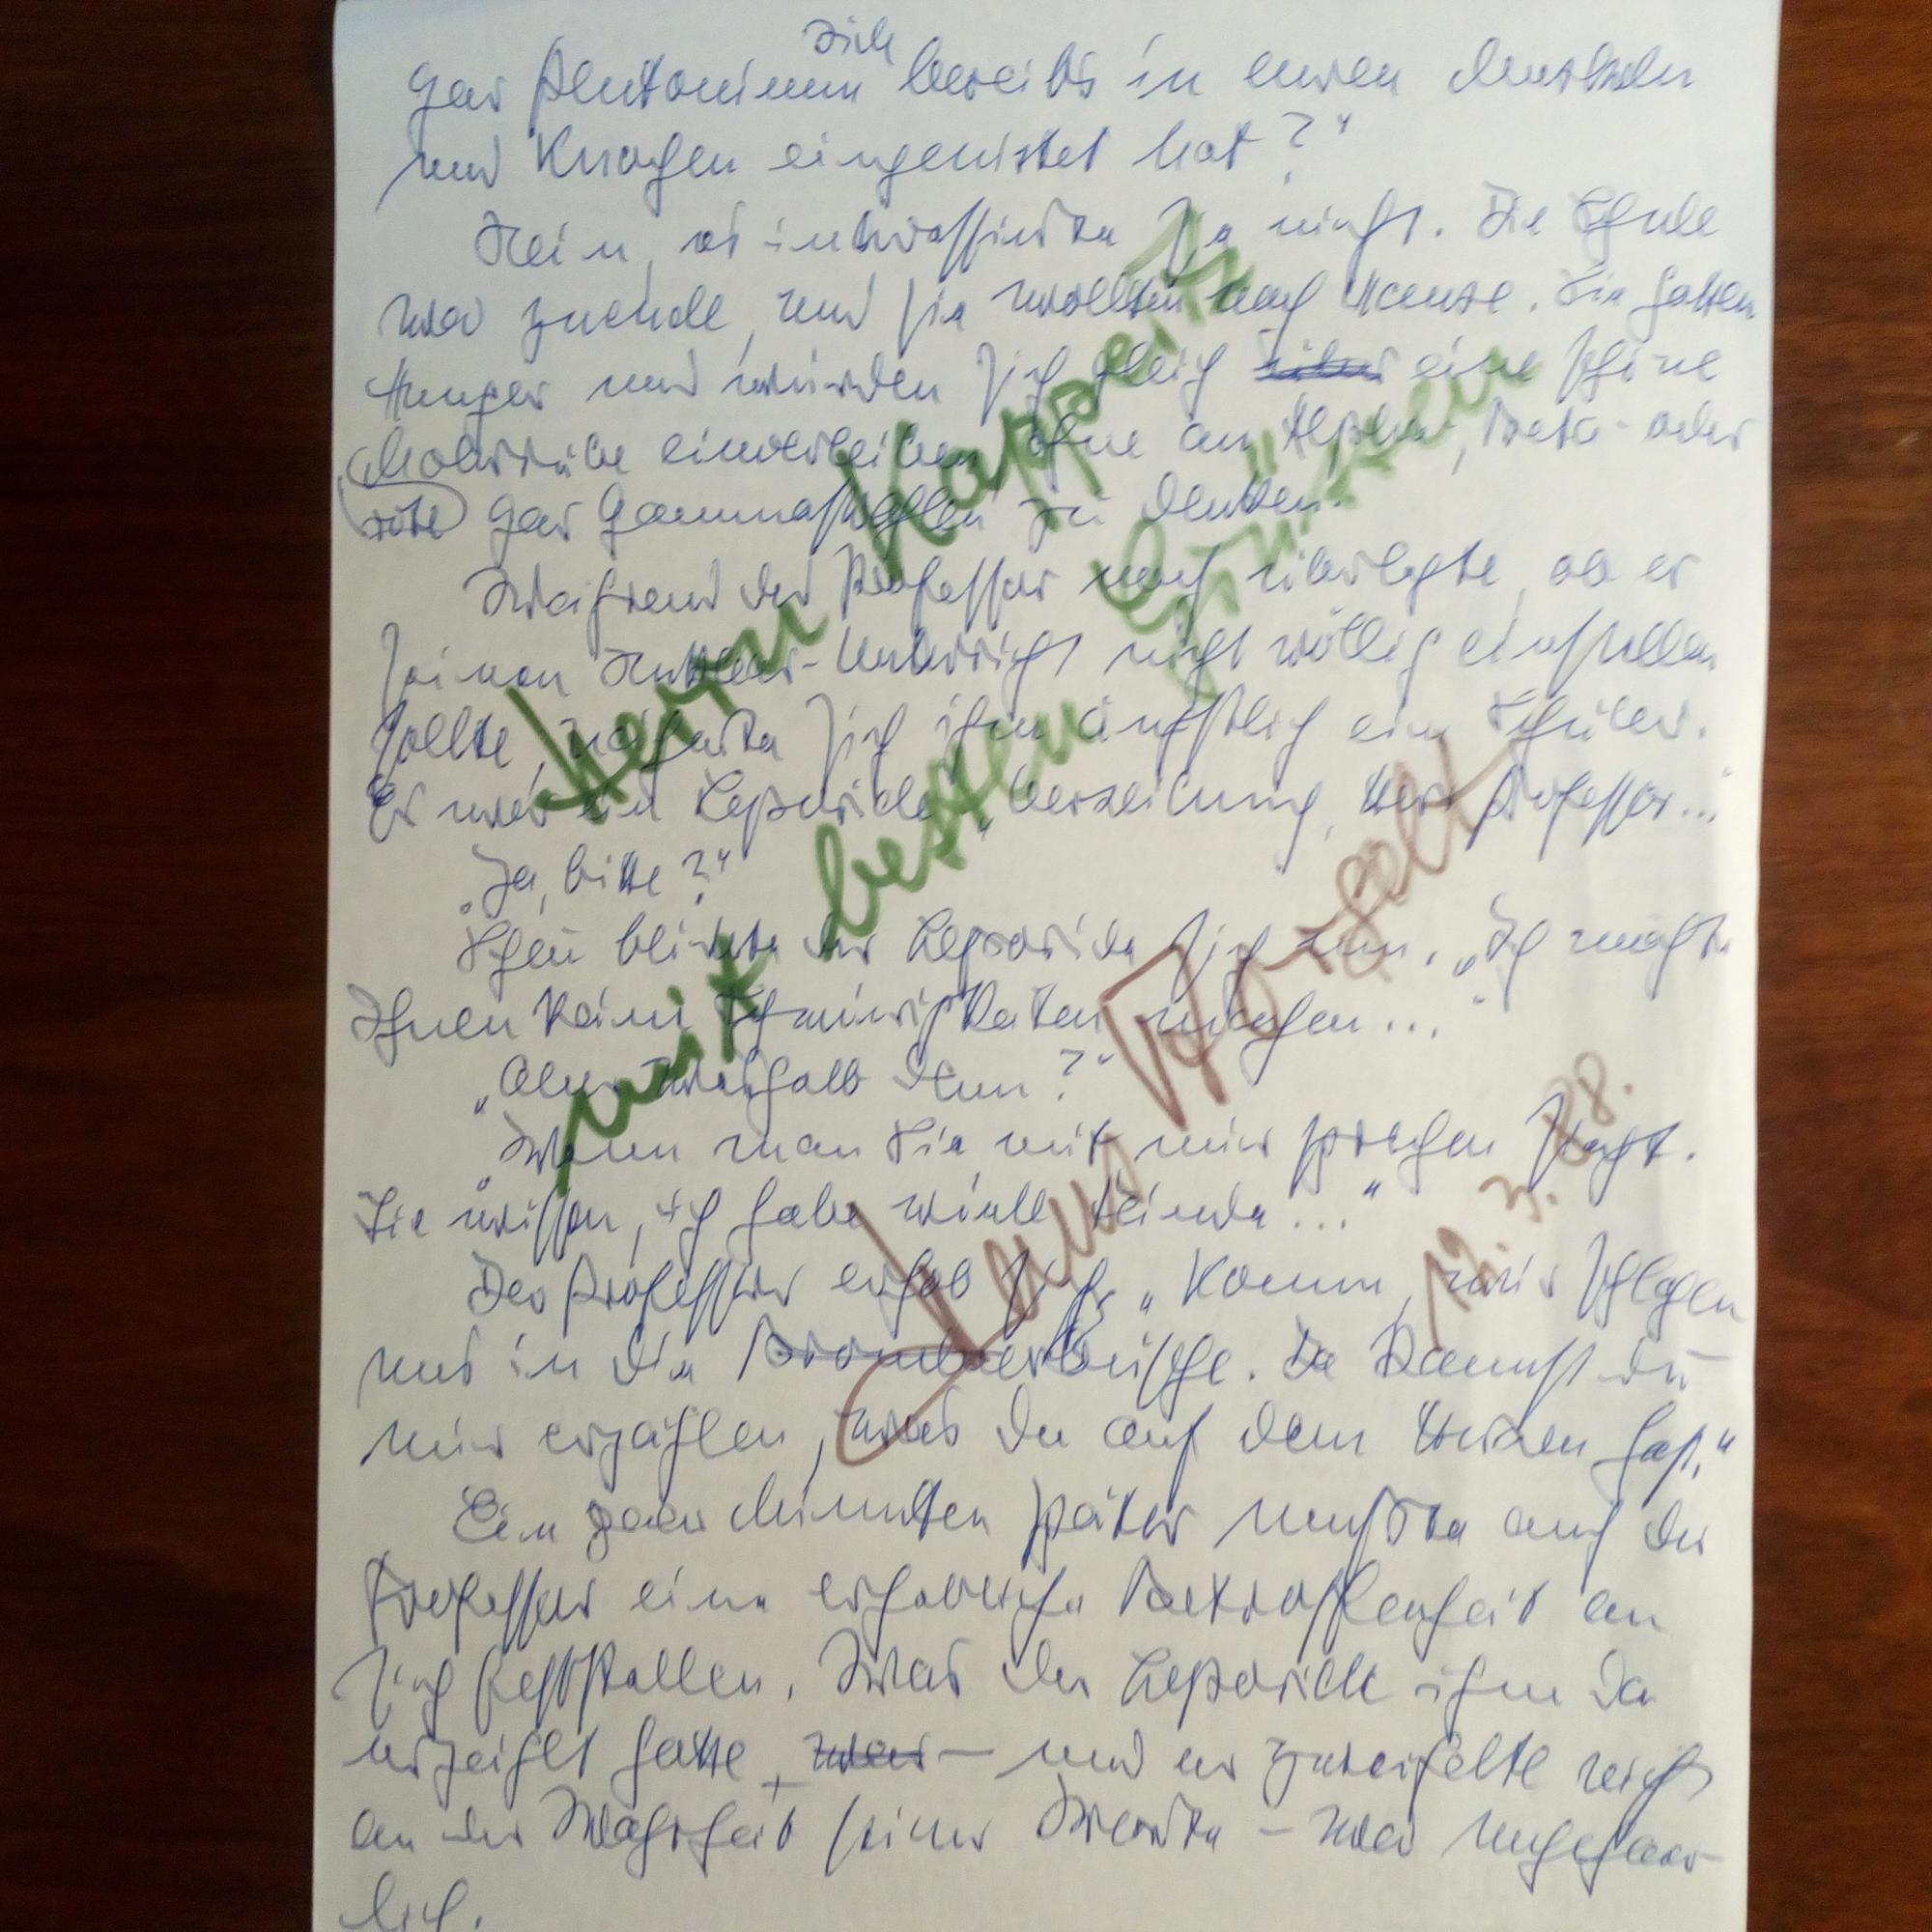 sich
gar Plutonium bereits in euren Muskeln
und Knochen eingenistet hat?"
Nein, es interessierte sie nicht. Die Schule
war zuende, und sie wollten nach Hause. Sie hatten
Hunger und würden sich gleich eine schöne
Mohrrübe einverleiben ohne an Alpha-, Beta- oder
rote gar Gammastrahlen zu denken.
Während der Professor noch überlegte, ob er
seinen Nuklear-Unterricht nicht völlig einstellen
sollte, näherte sich ihm ängstlich ein Schüler.
Er war ein Leporide. „Verzeihung, Herr Professor..."
„Ja, bitte?"
Scheu blickte der Leporide sich um. „Ich möchte
Ihnen keine Schwierigkeiten machen..."
„Aber weshalb denn?"
„Wenn man Sie mit mir sprechen sieht.
Sie wissen, ich habe viele Feinde..."
Der Professor erhob sich. „Komm, wir schlagen
uns in die Brombeerbüsche. Da kannst du
mir erzählen, was du auf dem Herzen hast."
Ein paar Minuten später mußte auch der
Professor eine erhebliche Betroffenheit an
sich feststellen. Was der Leporide ihm da
erzählt hatte, war – und er zweifelte nicht
an der Wahrheit seiner Worte – war ungeheuer-
lich.
Herrn Kappeitz
mit besten Grüßen
Hans Weigelt
12. 3. 88.